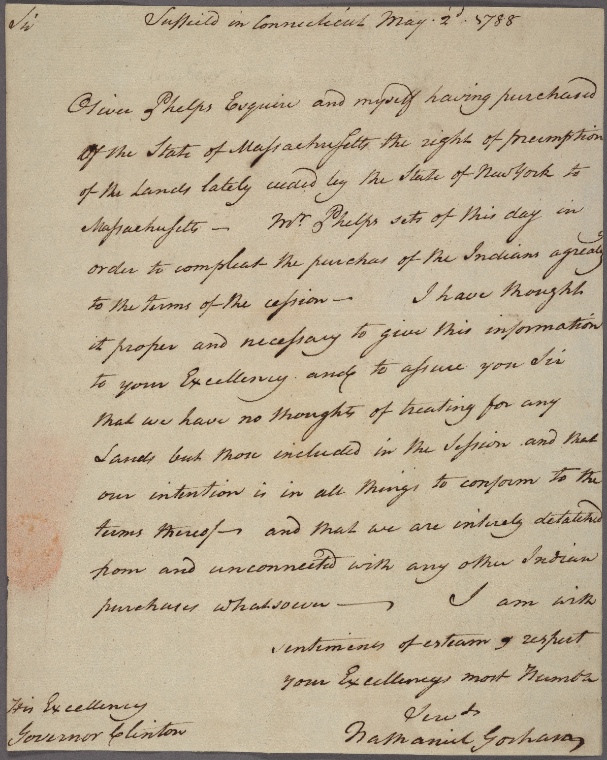 Sir Suffield in Connecticut May. 2d. 1788
Oliver Phelps Esquire and myself having purchased
of the State of Massachusetts the right of preemption
of the Lands lately ceded by the State of New York to
Massachusetts — Mr. Phelps sets of this day in
order to compleat the purchas of the Indians agreably
to the terms of the cession — I have thought
it proper and necessary to give this information
to your Excellency. and to assure you Sir
that we have no thoughts of treating for any
Lands but those included in the Session and that
our intention is in all things to conform to the
terms thereof — and that we are intirely detatched
from and unconnected with any other Indian
purchases whatsoever — I am with
sentiments of esteam & respect
your Excellencys most Humble
Servt
His Excellency
Governor Clinton
Nathaniel Gorham